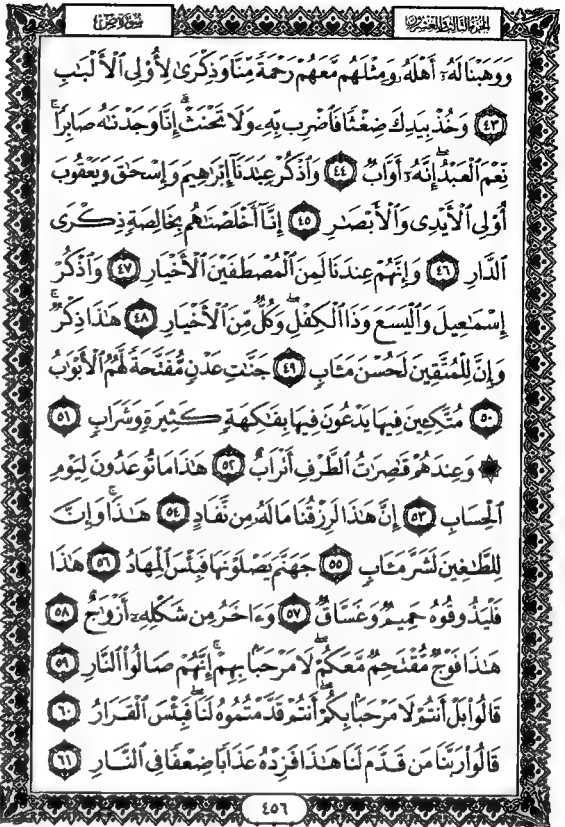 سُورَةُ صٓ
الجزء الثالث والعشرون
وَوَهَبْنَا لَهُۥٓ أَهْلَهُۥ وَمِثْلَهُم مَّعَهُمْ رَحْمَةً مِّنَّا وَذِكْرَىٰ لِأُو۟لِى ٱلْأَلْبَٰبِ
﴿٤٣﴾ وَخُذْ بِيَدِكَ ضِغْثًا فَٱضْرِب بِّهِۦ وَلَا تَحْنَثْ ۗ إِنَّا وَجَدْنَٰهُ صَابِرًا ۚ
نِّعْمَ ٱلْعَبْدُ ۖ إِنَّهُۥٓ أَوَّابٌ ﴿٤٤﴾ وَٱذْكُرْ عِبَٰدَنَآ إِبْرَٰهِيمَ وَإِسْحَٰقَ وَيَعْقُوبَ
أُو۟لِى ٱلْأَيْدِى وَٱلْأَبْصَٰرِ ﴿٤٥﴾ إِنَّآ أَخْلَصْنَٰهُم بِخَالِصَةٍ ذِكْرَى
ٱلدَّارِ ﴿٤٦﴾ وَإِنَّهُمْ عِندَنَا لَمِنَ ٱلْمُصْطَفَيْنَ ٱلْأَخْيَارِ ﴿٤٧﴾ وَٱذْكُرْ
إِسْمَٰعِيلَ وَٱلْيَسَعَ وَذَا ٱلْكِفْلِ ۖ وَكُلٌّ مِّنَ ٱلْأَخْيَارِ ﴿٤٨﴾ هَٰذَا ذِكْرٌ ۚ
وَإِنَّ لِلْمُتَّقِينَ لَحُسْنَ مَـَٔابٍ ﴿٤٩﴾ جَنَّٰتِ عَدْنٍ مُّفَتَّحَةً لَّهُمُ ٱلْأَبْوَٰبُ
﴿٥٠﴾ مُتَّكِـِٔينَ فِيهَا يَدْعُونَ فِيهَا بِفَٰكِهَةٍ كَثِيرَةٍ وَشَرَابٍ ﴿٥١﴾
۞ وَعِندَهُمْ قَٰصِرَٰتُ ٱلطَّرْفِ أَتْرَابٌ ﴿٥٢﴾ هَٰذَا مَا تُوعَدُونَ لِيَوْمِ
ٱلْحِسَابِ ﴿٥٣﴾ إِنَّ هَٰذَا لَرِزْقُنَا مَا لَهُۥ مِن نَّفَادٍ ﴿٥٤﴾ هَٰذَا ۚ وَإِنَّ
لِلطَّٰغِينَ لَشَرَّ مَـَٔابٍ ﴿٥٥﴾ جَهَنَّمَ يَصْلَوْنَهَا فَبِئْسَ ٱلْمِهَادُ ﴿٥٦﴾ هَٰذَا
فَلْيَذُوقُوهُ حَمِيمٌ وَغَسَّاقٌ ﴿٥٧﴾ وَءَاخَرُ مِن شَكْلِهِۦٓ أَزْوَٰجٌ ﴿٥٨﴾
هَٰذَا فَوْجٌ مُّقْتَحِمٌ مَّعَكُمْ ۖ لَا مَرْحَبًۢا بِهِمْ ۚ إِنَّهُمْ صَالُوا۟ ٱلنَّارِ ﴿٥٩﴾
قَالُوا۟ بَلْ أَنتُمْ لَا مَرْحَبًۢا بِكُمْ ۖ أَنتُمْ قَدَّمْتُمُوهُ لَنَا ۖ فَبِئْسَ ٱلْقَرَارُ ﴿٦٠﴾
قَالُوا۟ رَبَّنَا مَن قَدَّمَ لَنَا هَٰذَا فَزِدْهُ عَذَابًا ضِعْفًا فِى ٱلنَّارِ ﴿٦١﴾
٤٥٦